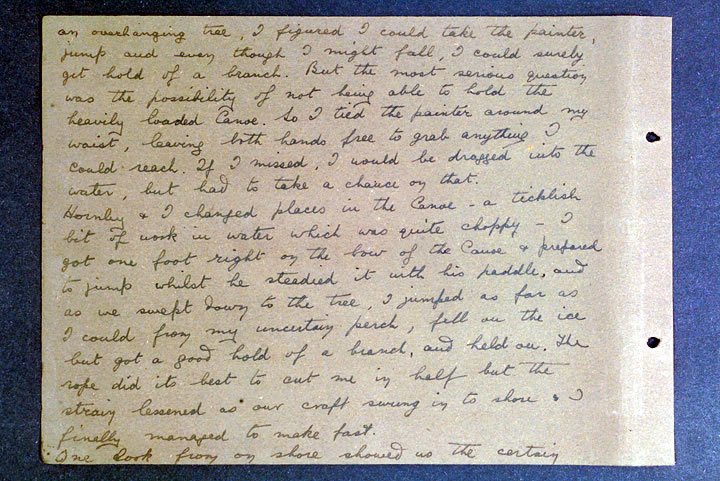 an overhanging tree, I figured I could take the painter,
jump and even though I might fall, I could surely
get hold of a branch. But the most serious question
was the possibility of not being able to hold the
heavily loaded Canoe. So I tied the painter around my
waist, leaving both hands free to grab anything I
could reach. If I missed, I would be dragged into the
water, but had to take a chance on that.
Hornby & I changed places in the Canoe - a ticklish
bit of work in water which was quite choppy - I
got one foot right on the bow of the Canoe & prepared
to jump whilst he steadied it with his paddle, and
as we swept down to the tree, I jumped as far as
I could from my uncertain perch, fell on the ice
but got a good hold of a branch, and held on. The
rope did its best to cut me in half but the
strain lessened as our craft swung in to shore & I
finally managed to make fast.
One look from on shore showed us the certain